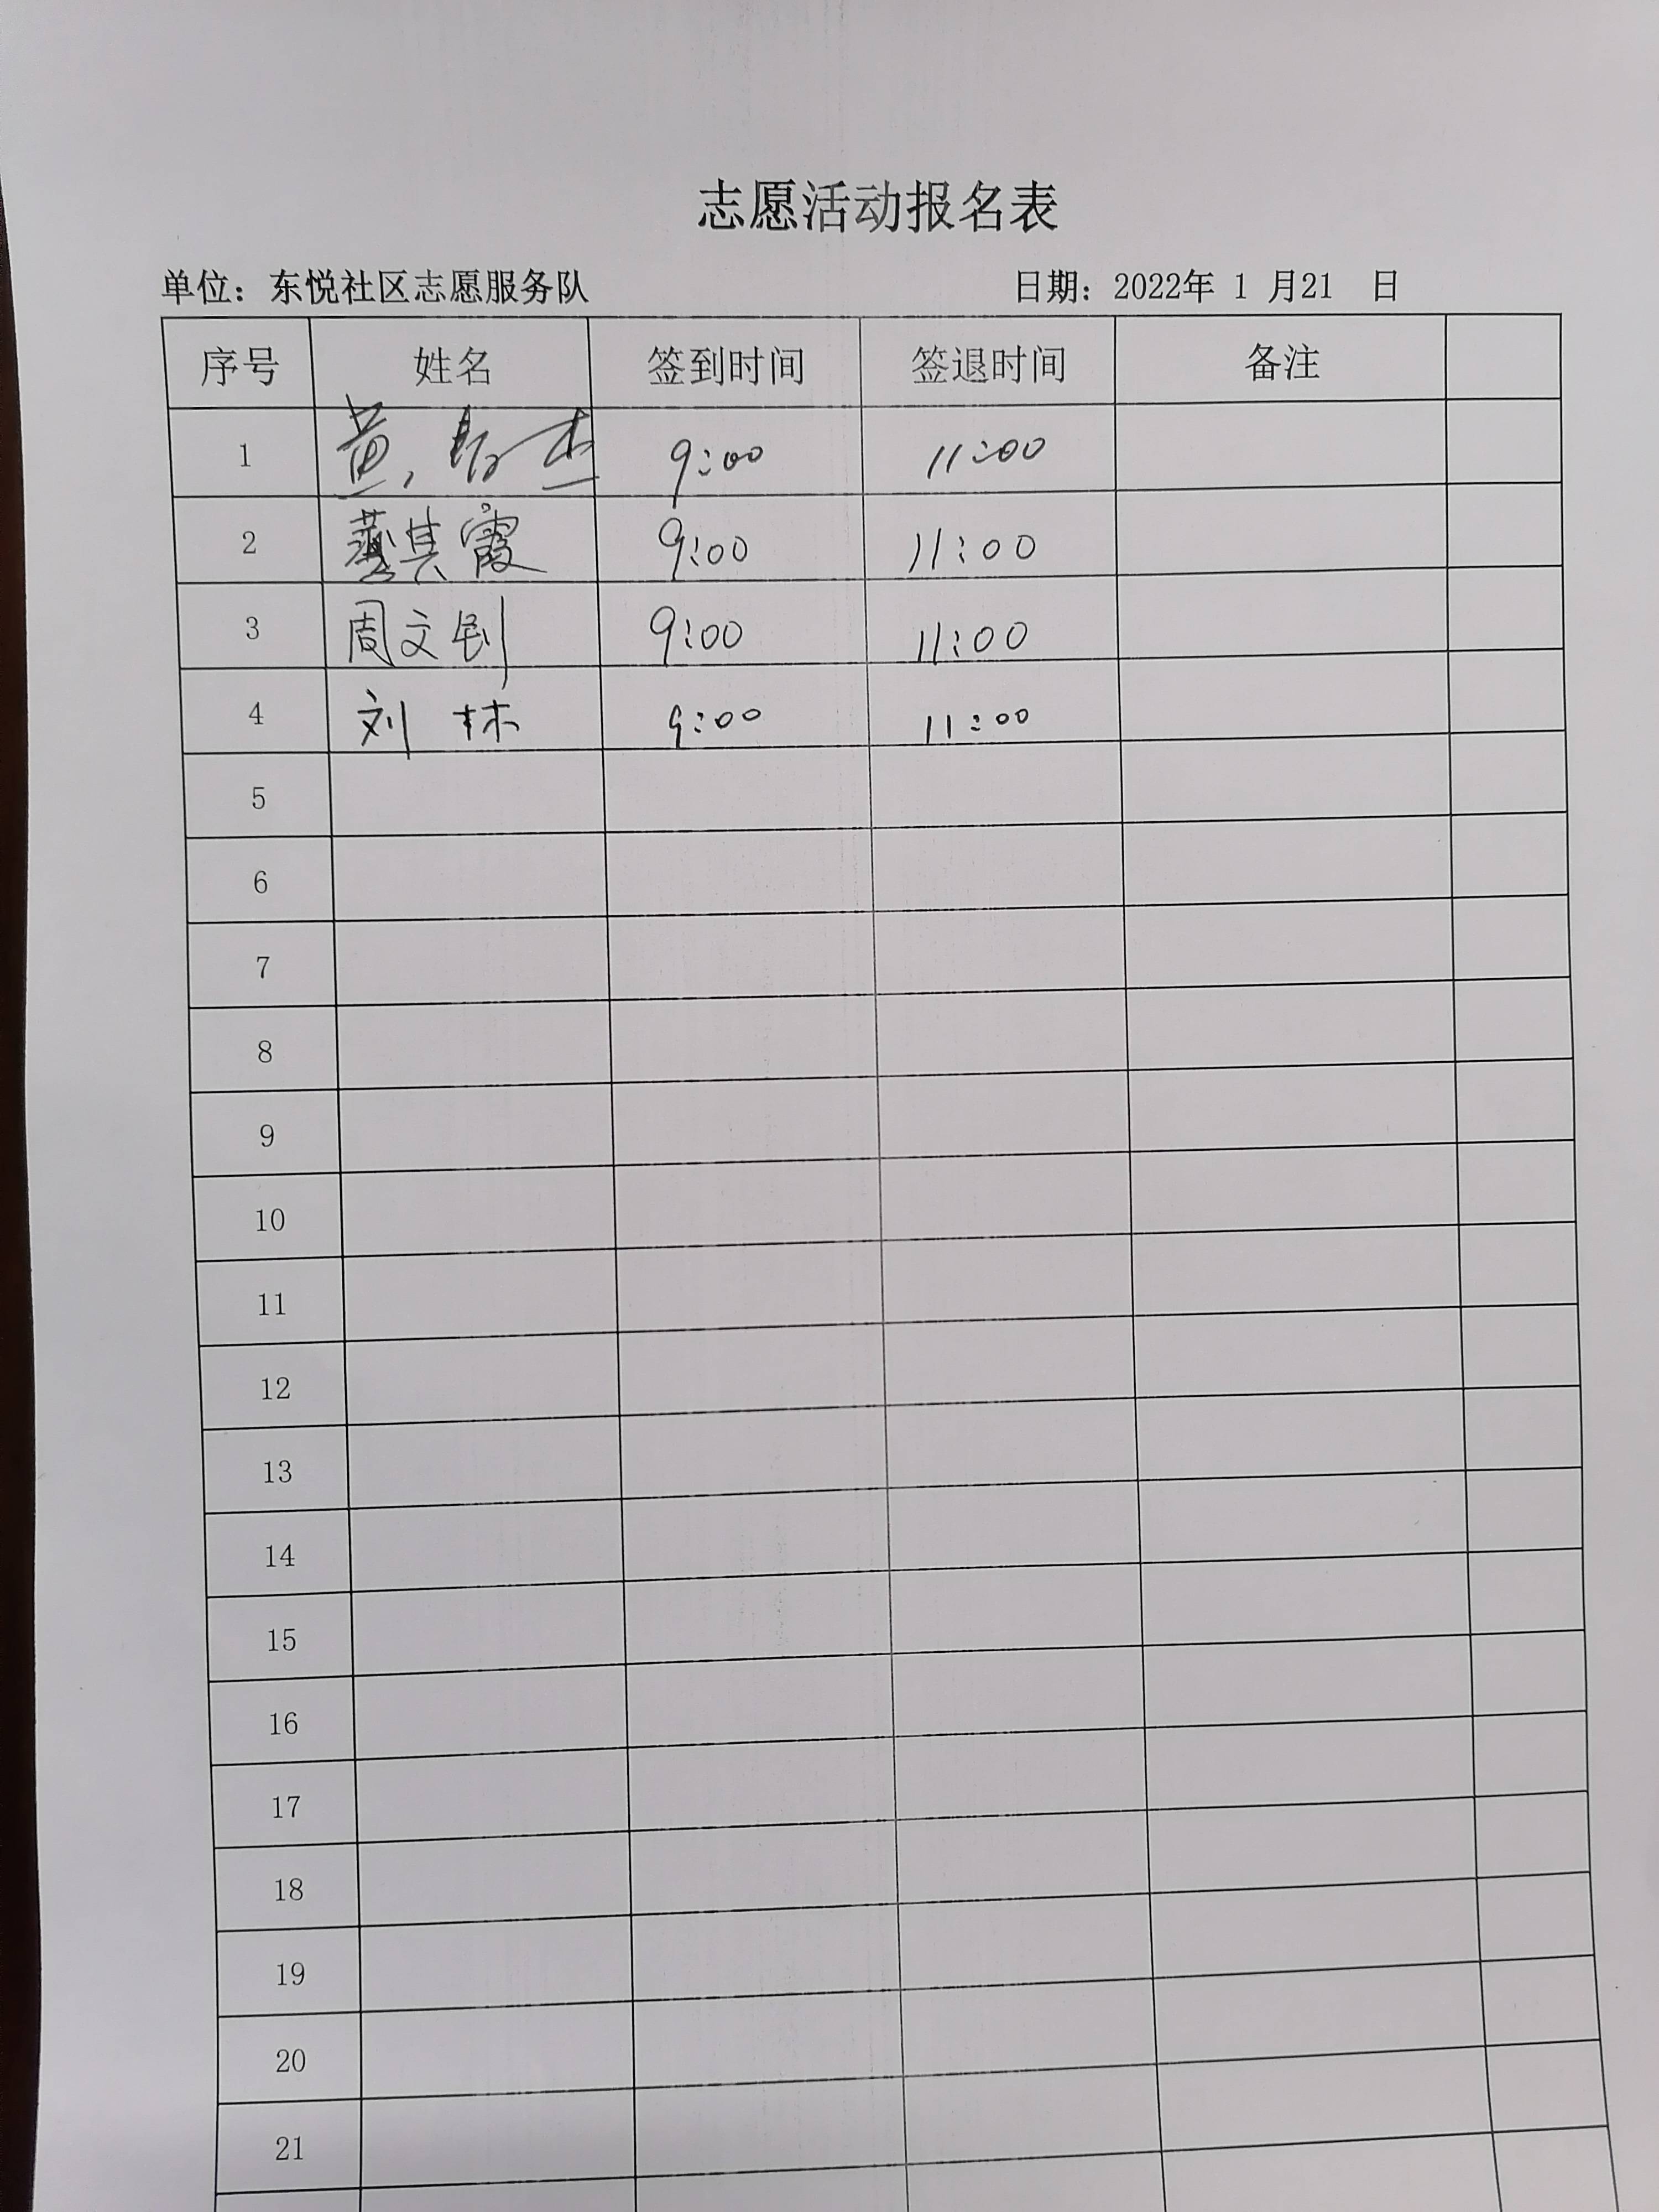 志愿活动报名表
单位：东悦社区志愿服务队 日期：2022年 1 月21 日
序号 姓名 签到时间 签退时间 备注
1 黄 杰 9:00 11:00
2 其霞 9:00 11:00
3 周文 9:00 11:00
4 刘 林 9:00 11:00
5
6
7
8
9
10
11
12
13
14
15
16
17
18
19
20
21